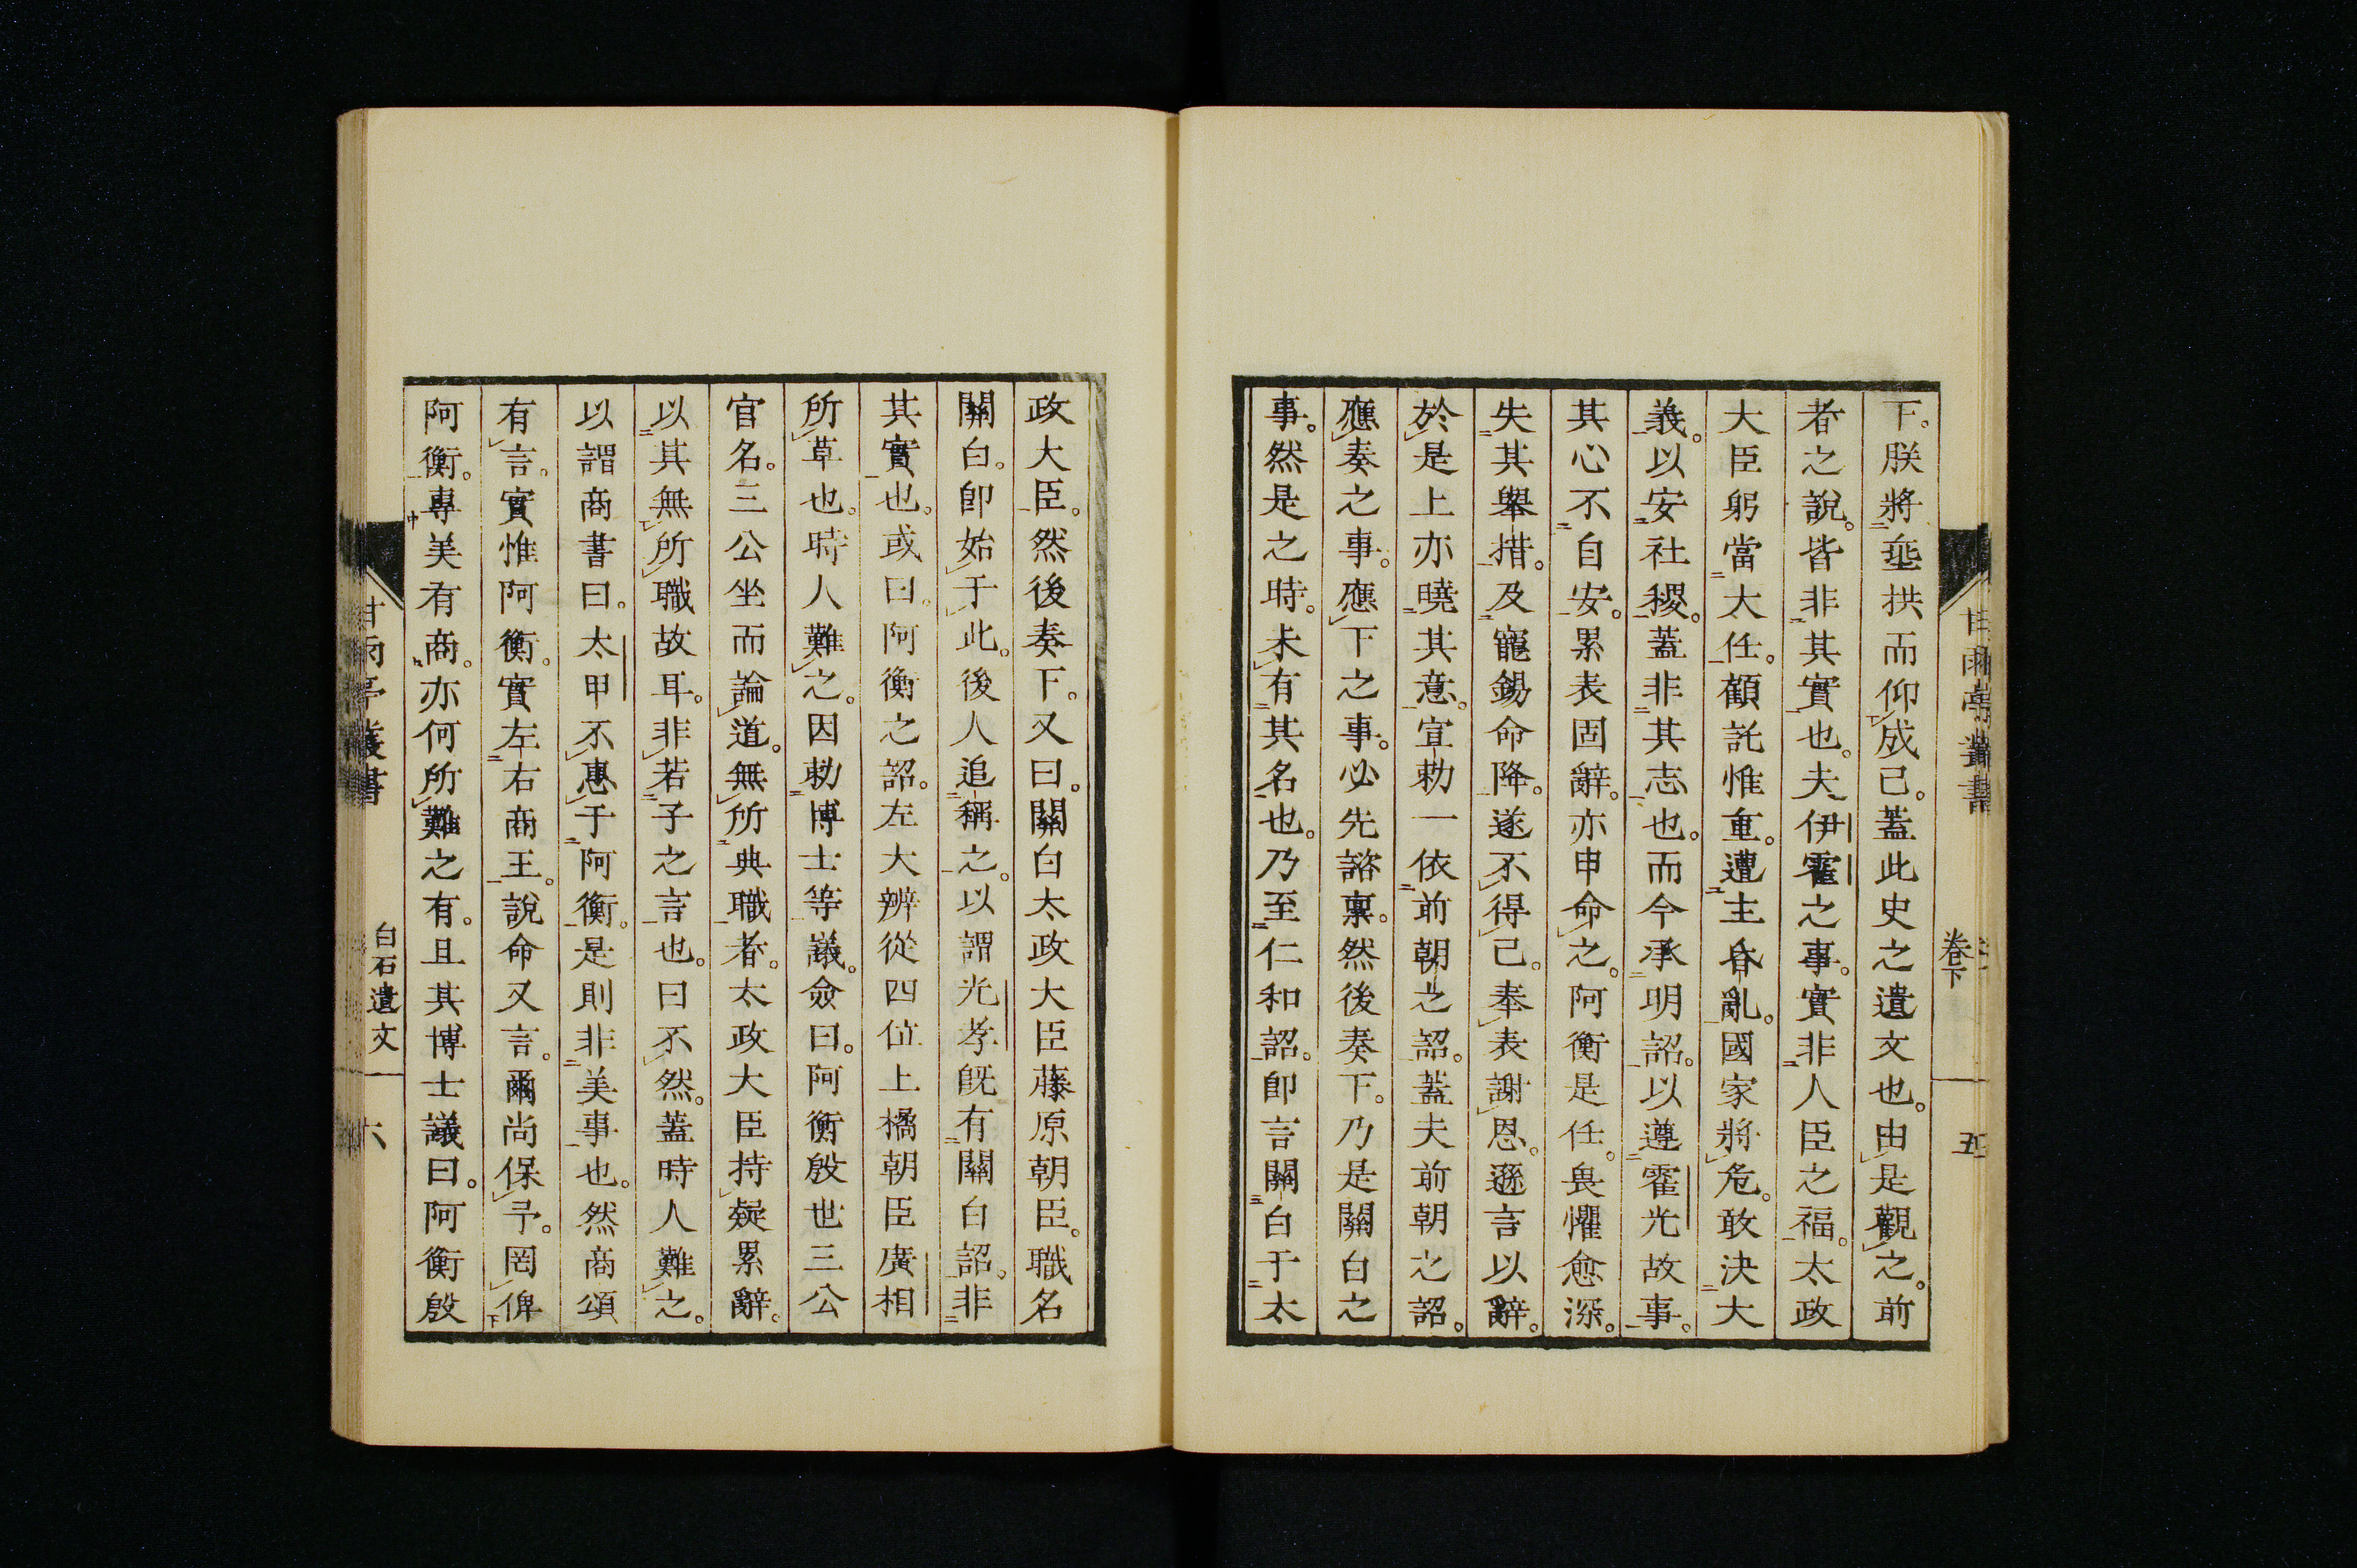 下。朕將埀拱而仰成已。蓋此史之遺文也。由是觀之。前
者之說。皆非其實也。夫伊霍之事。實非人臣之福。太政
大臣躬當大任。顧託惟重。遭主昏亂。國家將危。敢決大
義。以安社稷。蓋非其志也。而今承明詔。以遵霍光故事。
其心不自安。累表固辭。亦申命之。阿衡是任。畏懼愈深。
失其舉措。及寵錫命降。遂不得已。奉表謝恩。遜言以辭。
於是上亦曉其意。宣勅一依前朝之詔。蓋夫前朝之詔。
應奏之事。應下之事。必先諮稟。然後奏下。乃是關白之
事。然是之時。未有其名也。乃至仁和詔。卽言關白于太
甘雨亭叢書
卷下
五
政大臣。然後奏下。又曰。關白太政大臣藤原朝臣。職名
關白。卽始于此。後人追稱之。以謂光孝旣有關白詔。非
其實也。或曰。阿衡之詔。左大辨從四位上橘朝臣廣相
所草也。時人難之。因勅博士等議。僉曰。阿衡殷世三公
官名。三公坐而論道。無所典職者。太政大臣持疑累辭。
以其無所職故耳。非若子之言也。曰不然。蓋時人難之。
以謂商書曰。太甲不惠于阿衡。是則非美事也。然商頌
有言。實惟阿衡。實左右商王。說命又言。爾尚保予。罔俾
阿衡。專美有商。亦何所難之有。且其博士議曰。阿衡殷
甘雨亭叢書
白石遺文
六